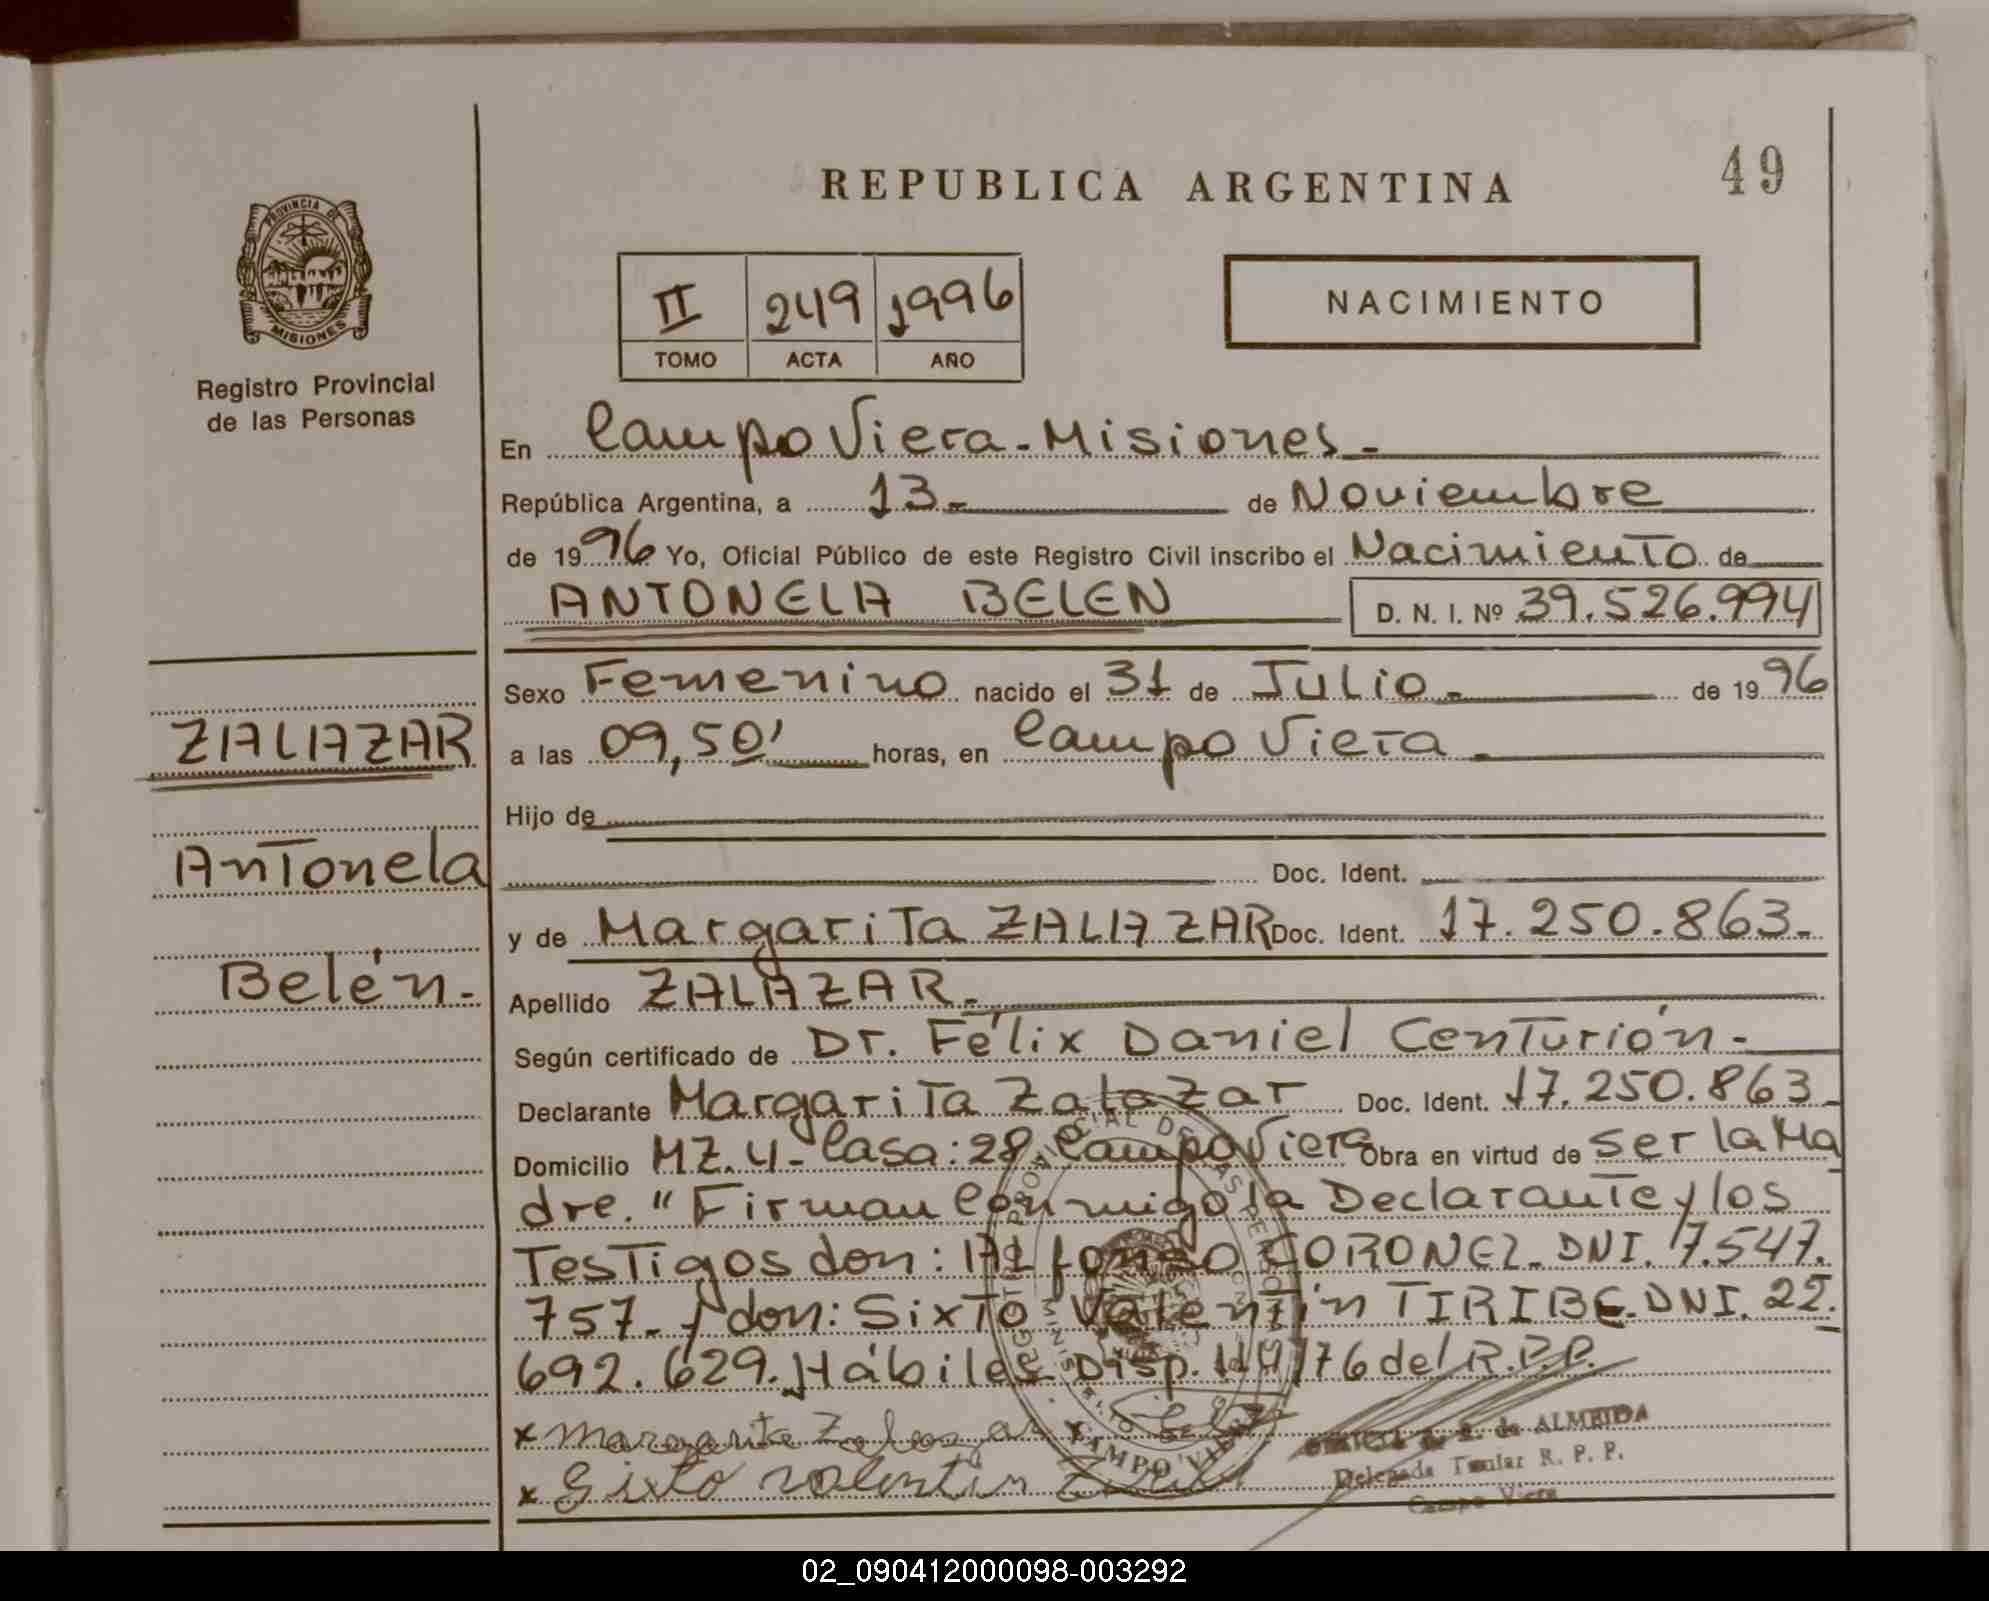 REPUBLICA ARGENTINA
49
PROVINCIA DE
MISIONES
Registro Provincial
de las Personas
II 249 1996
TOMO ACTA AÑO
NACIMIENTO
En Campo Viera - Misiones -
República Argentina, a 13 - de Noviembre
de 1996 Yo, Oficial Público de este Registro Civil inscribo el Nacimiento de
ANTONELA BELEN D. N. I. Nº 39.526.994
Sexo Femenino nacido el 31 de Julio - de 1996
a las 09,50' horas, en Campo Viera -
Hijo de
Doc. Ident.
y de Margarita ZALAZAR Doc. Ident. 17.250.863.-
Apellido ZALAZAR.-
Según certificado de Dr. Félix Daniel Centurión.-
Declarante Margarita Zalazar Doc. Ident. 17.250.863-
Domicilio MZ. 4 - Casa: 28 Campo Viera Obra en virtud de ser la Ma
dre. "Firman Conmigo la Declarante y los
Testigos don: Alfonso CORONEL. DNI. 7.547.
757.- y don: Sixto Valentín TIRIBE. DNI. 22.
692.629. Hábiles Disp. 119/76 del R.P.P.
x Margarita Zalazar x
x Sixto valentin
de ALMEIDA
Delegada Titular R. P. P.
Campo Viera
CAMPO VIERA
ZALAZAR
Antonela
Belén.-
02_090412000098-003292